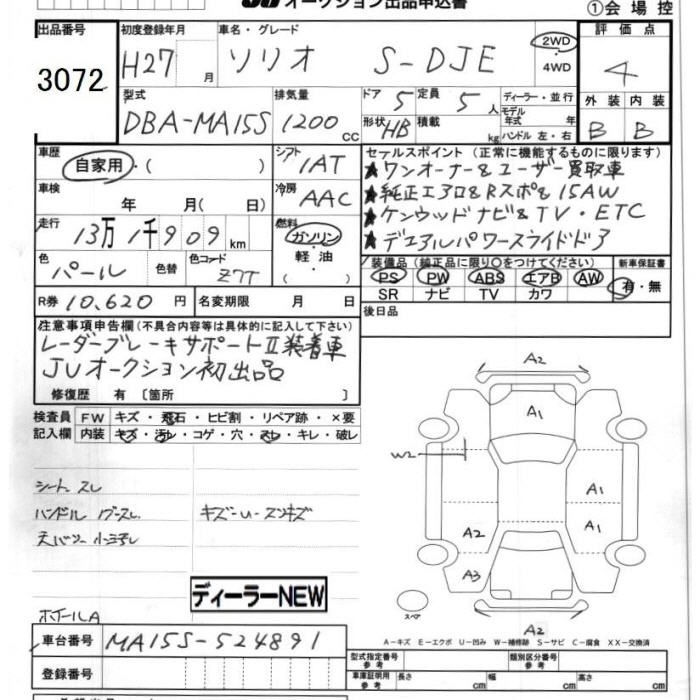 オークション出品申込書
①会場控
出品番号
3072
初度登録年月
H27 月
車名・グレード
ソリオ S-DJE
2WD
4WD
評価点
4
型式
DBA-MA15S
排気量
1200 CC
ドア 5
定員 5 人
形状 HB
積載 kg
ディーラー・並行
モデル年式 年式
ハンドル 左・右
外装 内装
B B
車歴
自家用・( )
シフト
1AT
車検
年 月( 日)
冷房
AAC
走行
13万1千909km
燃料
ガソリン・
軽油・
( )
色
パール
色替
色コード
Z7T
R券 10,620 円
名変期限 月 日
セールスポイント(正常に機能するものに限ります)
★ワンオーナー&ユーザー買取車
★純正エアロ&Rスポ&15AW
★ケンウッドナビ&TV・ETC
★デュアルパワースライドドア
装備品(純正品に限り○をつけてください)
PS PW ABS エアB AW
SR ナビ TV カワ
新車保証書
有・無
後日品
注意事項申告欄(不具合内容等は具体的に記入して下さい)
レーダーブレーキサポートⅡ装着車
JUオークション初出品
修復歴 有 〔箇所 〕
検査員 FW キズ・飛石・ヒビ割・リペア跡・×要
記入欄 内装 キズ・汚れ・コゲ・穴・スレ・キレ・破レ
シートスレ
ハンドル
キズ-U-スリキズ
ディーラーNEW
ホイールA
A2
A1
W2
A1
A2
A1
A3
スペア
A2
A-キズ E-エクボ U-凹み W-補修跡 S-サビ C-腐食 XX-交換済
車台番号 MA15S-524891
登録番号
型式指定番号
参考
類別区分番号
参考
車庫証明用
参考
長さ cm 幅 cm 高さ cm